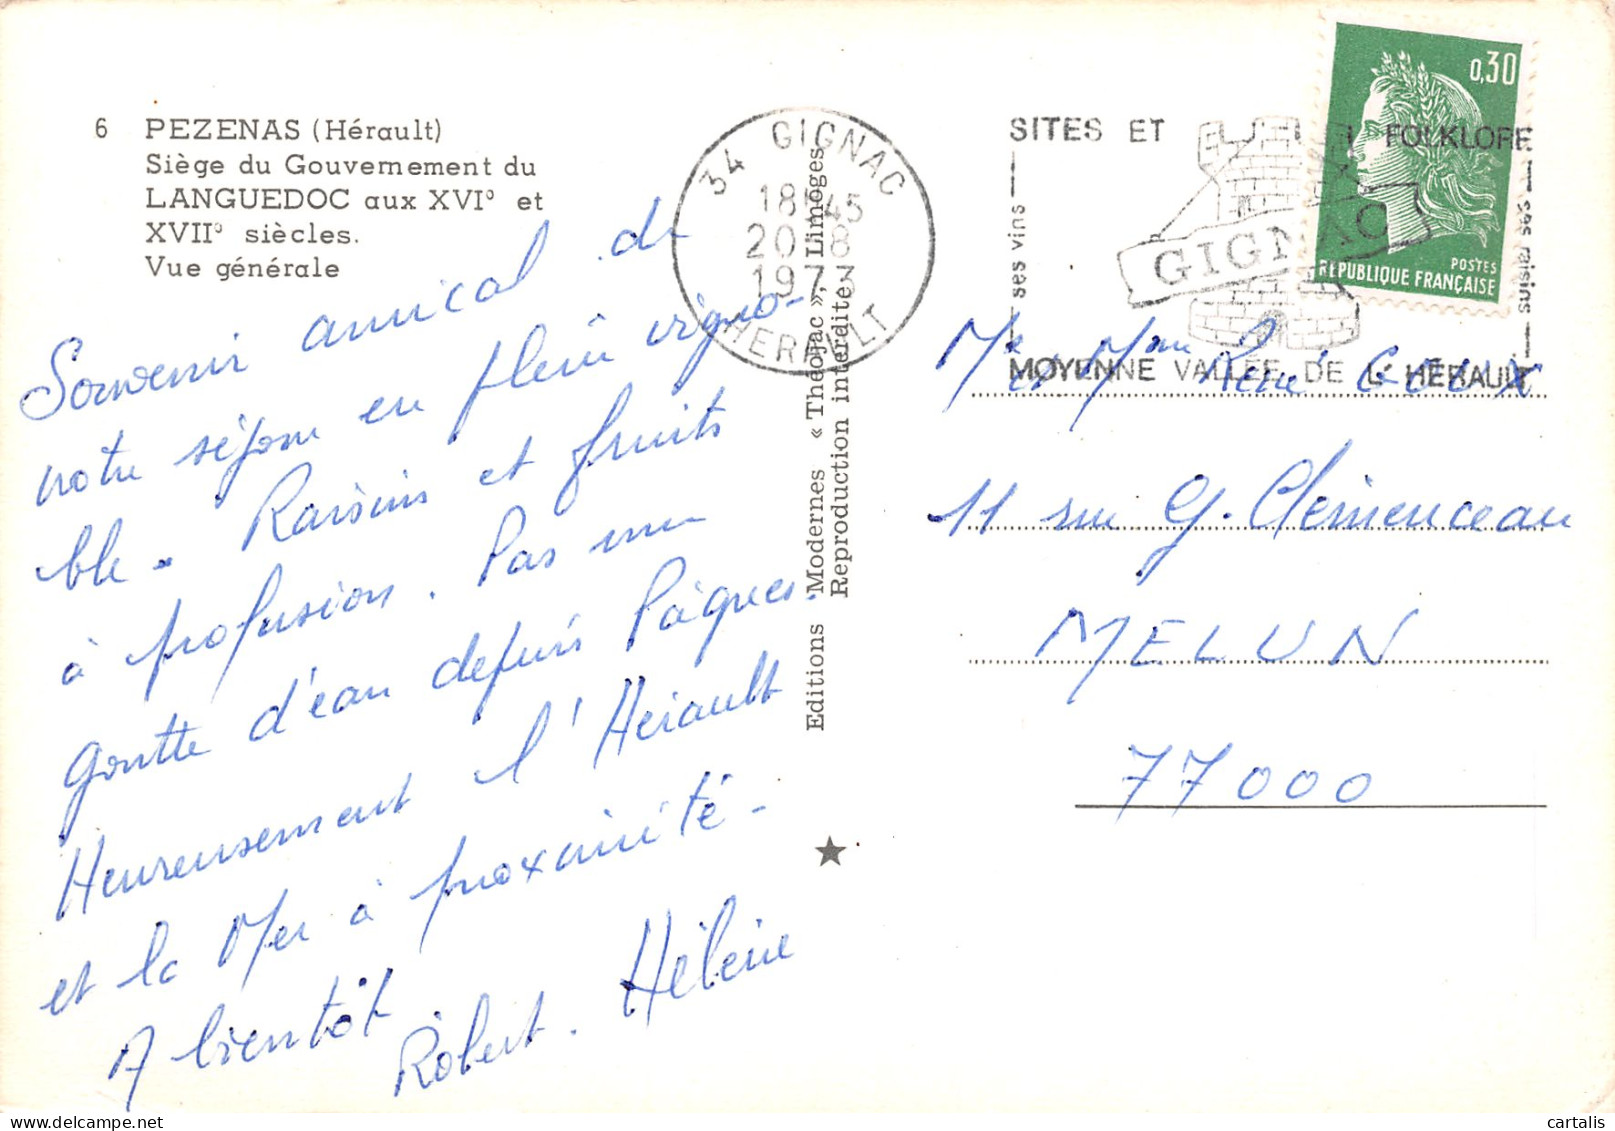 6 PEZENAS (Hérault)
Siège du Gouvernement du
LANGUEDOC aux XVI° et
XVII° siècles.
Vue générale
Souvenir amical de
notre séjour en plein vigno-
ble - Raisins et fruits
à profusion. Pas une
goutte d'eau depuis Pâques.
Heureusement l'Hérault
et la Mer à proximité -
A bientôt
Robert. Hélène
Editions Modernes « Théojac », Limoges
Reproduction interdite
34 GIGNAC
18H45
20-8
1973
HERAULT
SITES ET FOLKLORE
ses vins
GIGNAC
ses raisins
MOYENNE VALLEE DE L'HÉRAULT
0,30
POSTES
REPUBLIQUE FRANÇAISE
Mr et Mme René
11 rue G. Clémenceau
MELUN
77000
cartalis